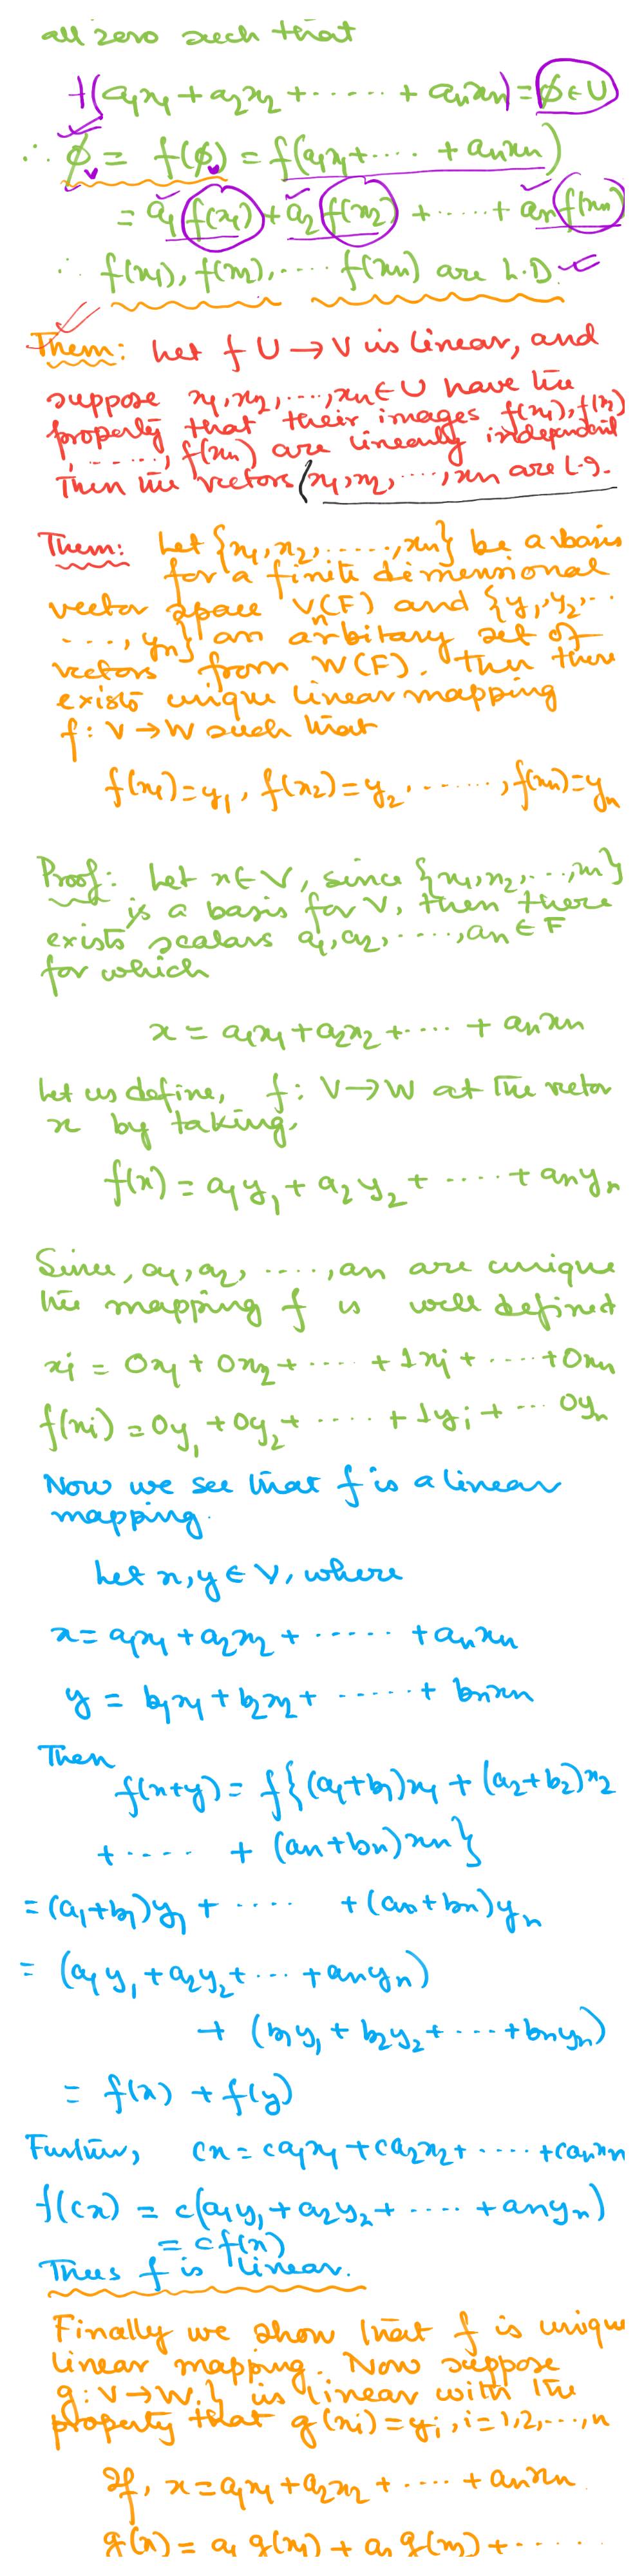 all zero such that
f(a₁x₁ + a₂x₂ + ..... + aₙxₙ) = ϕ ∈ U
∴ ϕᵥ = f(ϕᵤ) = f(a₁x₁ + .... + aₙxₙ)
= a₁ f(x₁) + a₂ f(x₂) + ..... + aₙ f(xₙ)
∴ f(x₁), f(x₂), .... f(xₙ) are L.D.
Them: Let f U → V is linear, and
suppose x₁, x₂, ...., xₙ ∈ U have the
property that their images f(x₁), f(x₂)
, ......, f(xₙ) are linearly independent
Then the vectors (x₁, x₂, ...., xₙ are L.I.
Them: Let {x₁, x₂, ....., xₙ} be a basis
for a finite dimensional
vector space V(F) and {y₁, y₂, ..
...., yₙ} an arbitary set of n
vectors from W(F). Then there
exists unique linear mapping
f: V → W such that
f(x₁) = y₁, f(x₂) = y₂, ......., f(xₙ) = yₙ
Proof: Let x ∈ V, since {x₁, x₂, ..., xₙ}
is a basis for V, then there
exists scalars a₁, a₂, ....., aₙ ∈ F
for which
x = a₁x₁ + a₂x₂ + .... + aₙxₙ
Let us define, f: V → W at the vector
x by taking,
f(x) = a₁y₁ + a₂y₂ + ..... + aₙyₙ
Since, a₁, a₂, ....., aₙ are unique
the mapping f is well defined
xᵢ = 0x₁ + 0x₂ + .... + 1xᵢ + .... + 0xₙ
f(xᵢ) = 0y₁ + 0y₂ + .... + 1yᵢ + ... 0yₙ
Now we see that f is a linear
mapping.
Let x, y ∈ V, where
x = a₁x₁ + a₂x₂ + ...... + aₙxₙ
y = b₁x₁ + b₂x₂ + ..... + bₙxₙ
Then
f(x+y) = f{(a₁+b₁)x₁ + (a₂+b₂)x₂
+ .... + (aₙ+bₙ)xₙ}
= (a₁+b₁)y₁ + .... + (aₙ+bₙ)yₙ
= (a₁y₁ + a₂y₂ + ... + aₙyₙ)
+ (b₁y₁ + b₂y₂ + .... + bₙyₙ)
= f(x) + f(y)
Further, cx = ca₁x₁ + ca₂x₂ + .... + caₙxₙ
f(cx) = c(a₁y₁ + a₂y₂ + .... + aₙyₙ)
= cf(x)
Thus f is linear.
Finally we show that f is unique
linear mapping. Now suppose
g: V → W.} is linear with the
property that g(xᵢ) = yᵢ, i = 1, 2, ..., n
If, x = a₁x₁ + a₂x₂ + .... + aₙxₙ
g(x) = a₁ g(x₁) + a₂ g(x₂) + .....